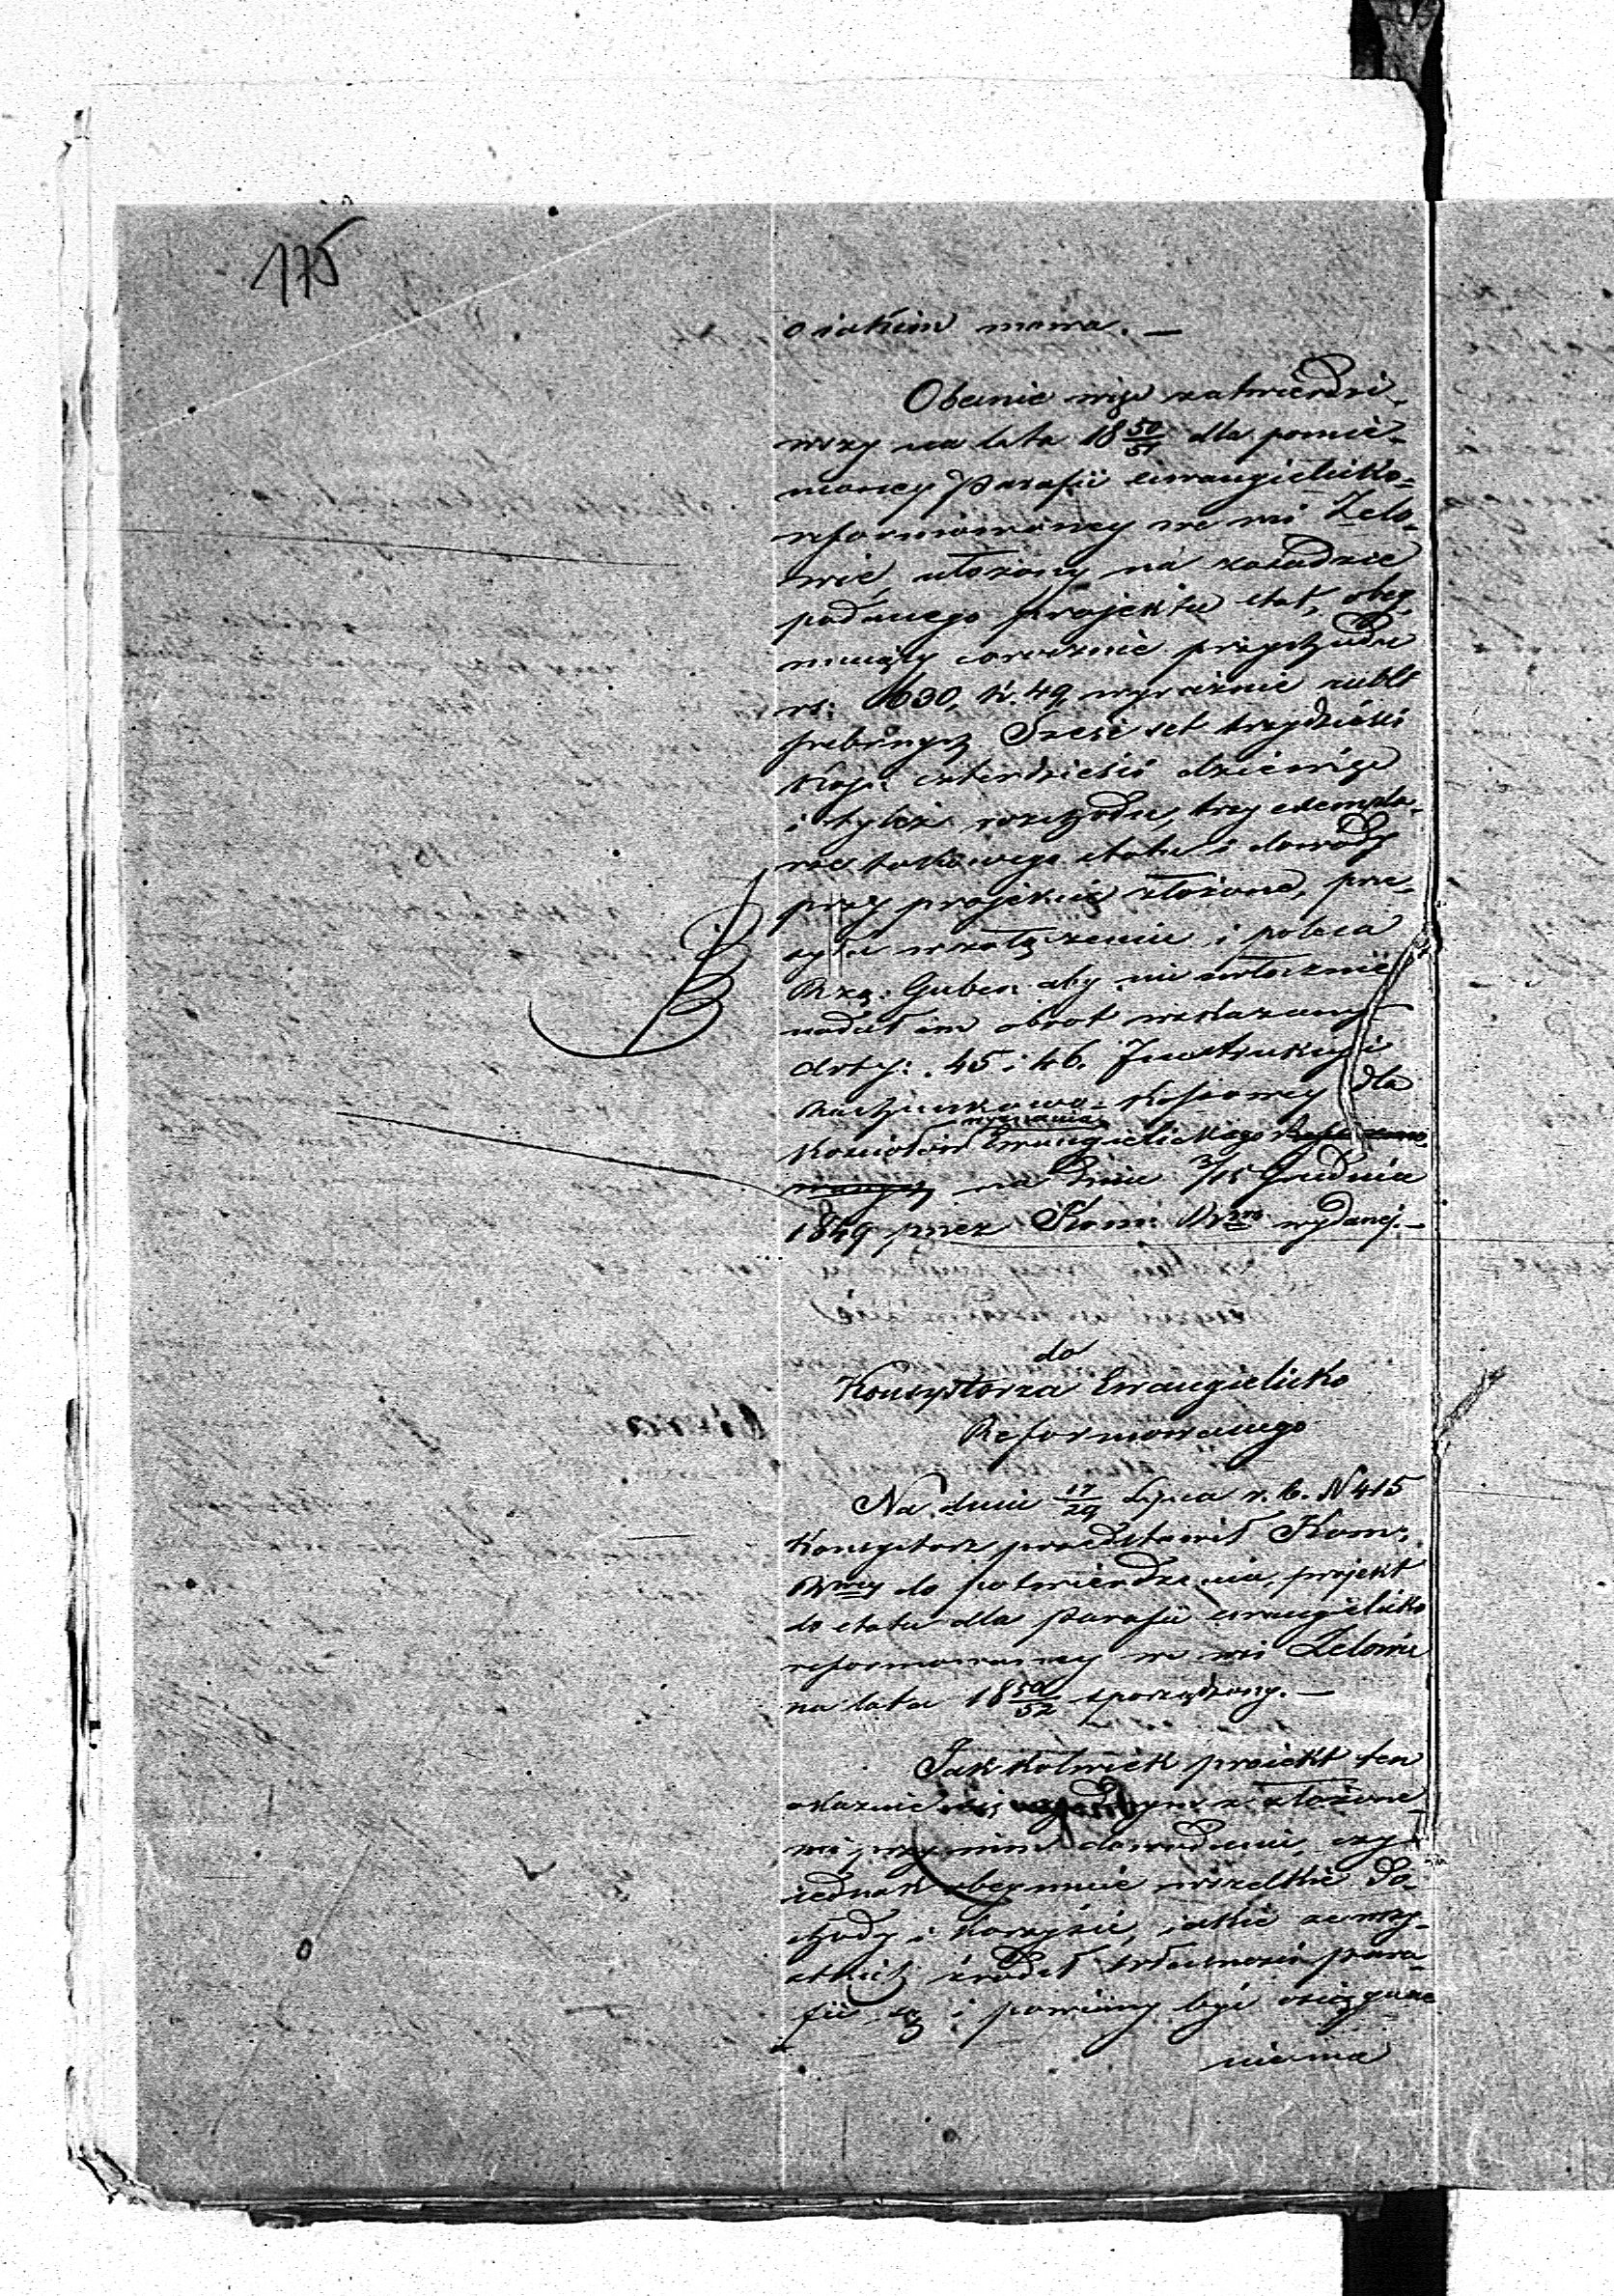 175
o iakim mowa. —
Obecnie więc zatwierdzi-
wszy na lata 18 50/51 dla pomie-
nioney Parafii ewangielicko=
reformowaney we wsi Zelo-
wie, ułożony na zasadzie
podanego projektu etat, obey-
muiący corocznie przychodu
rs: 630, k. 49, wyraźnie rubli
srebrnych Sześćset trzydzieści
kop: czterdzieści dziewięć
i tyleż rozchodu, trzy exempla-
rze takowego etatu i dowody
przy projekcie złożone, prze-
syła w załączeniu i poleca
Rzą: Guber: aby niezwłocznie
nadał im obrot wskazany
arty: 45 i 46. Instrukcyi
Rachunkowo-Kassowey dla
wyznania
Kościołów Ewangielickiego
na dniu 3/15 Grudnia
1849 przez Kom: Rz. wydanej. —
do
Konsystorza Ewangielicko
Reformowanego
Na dniu 17/29 Lipca r. b. N 415
Konsystorz przedstawił Kom:
Rz. do potwierdzenia, projekt
do etatu dla Parafii ewangielicko
reformowaney we wsi Zelowie
na lata 18 50/52 sporządzony. —
Jakkolwiek proiekt ten
okazuie się z złożone-
mi przy nim dowodami, czy
iednak obeymuie wszelkie Do-
chody i korzyści, iakie ze wszy-
stkich źrodeł własności para-
fii są i powinny być osiągane
niema